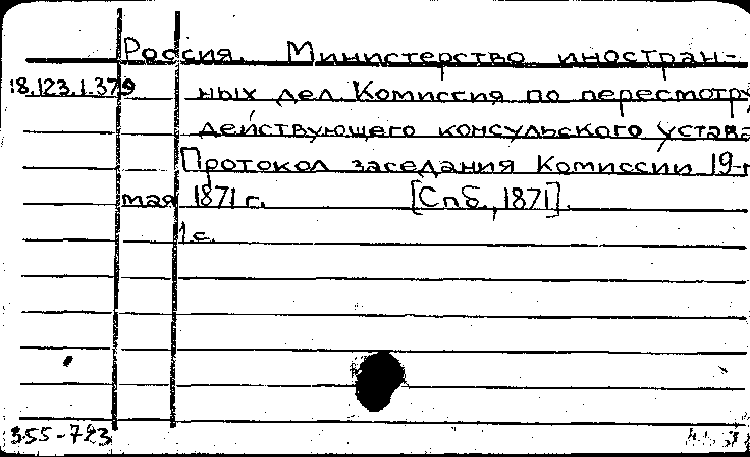 Россия. Министерство иностран-
18.123.1.379 ных дел. Комиссия по пересмотру
действующего консульского устава
Протокол заседания Комиссии 19-г
мая 1871 г. [Спб., 1871].
1 с.
355-723